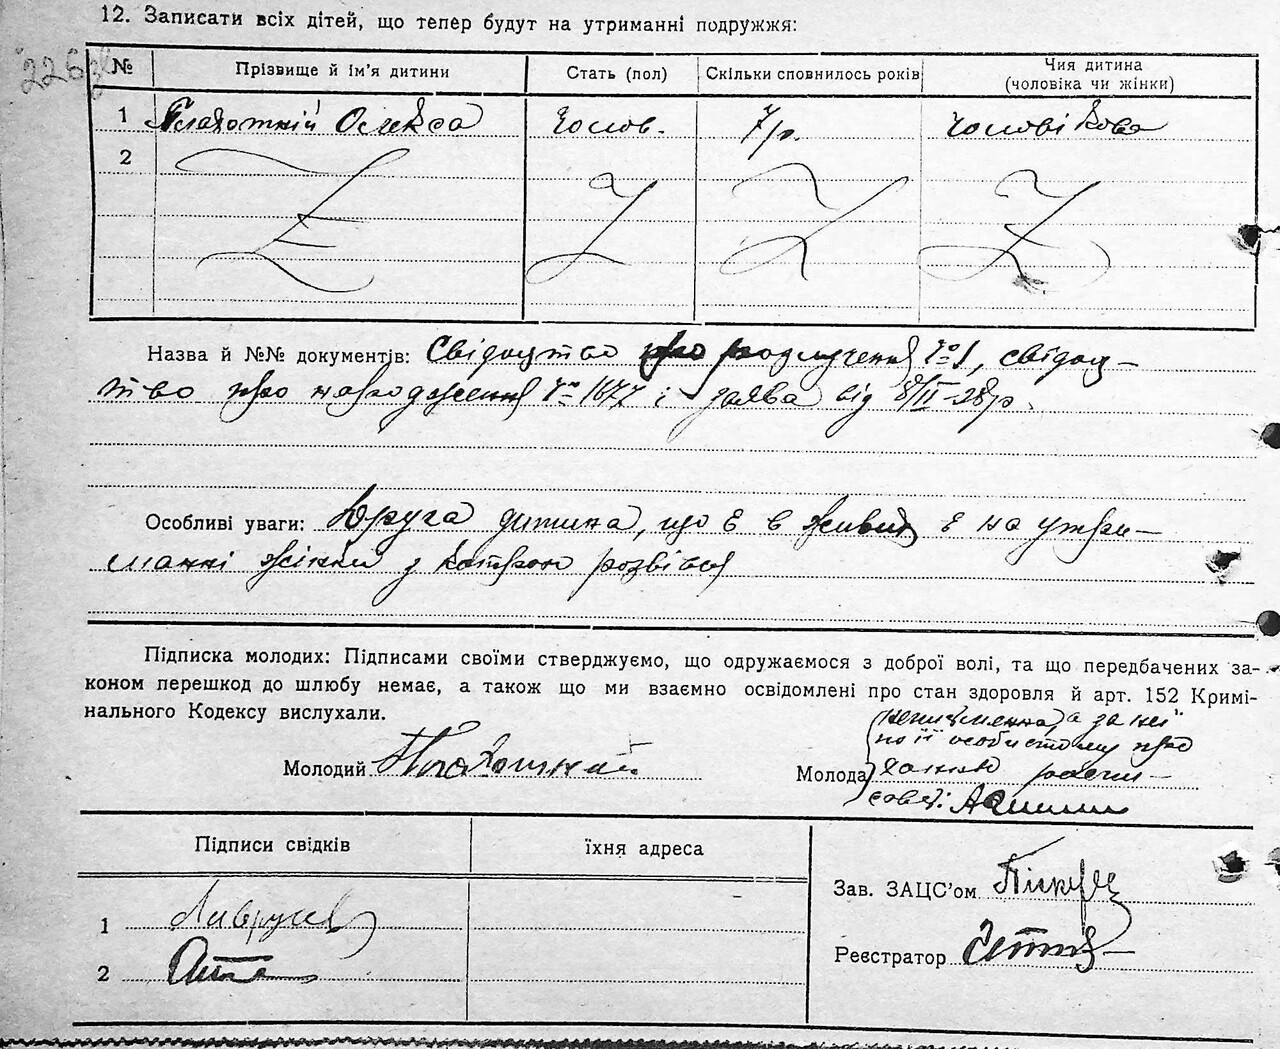 12. Записати всіх дітей, що тепер будут на утриманні подружжя:
226
№ Прізвище й ім'я дитини Стать (пол) Скільки сповнилось років Чия дитина (чоловіка чи жінки)
1 Плахотній Олекса Чолов. 7 р. Чоловікова
2
Назва й №№ документів: Свідоцтво про розлучення № 1, свідоц-
тво про народження № 1677 і заява від 8/II-28 р.
Особливі уваги: Друга дитина, що є в живих є на утри-
манні жінки з котрою розвівся
Підписка молодих: Підписами своїми стверджуємо, що одружаємося з доброї волі, та що передбачених за-
коном перешкод до шлюбу немає, а також що ми взаємно освідомлені про стан здоровля й арт. 152 Кримі-
нального Кодексу вислухали.
Молодий Плахотний
Молода неписьменна, а за неї
по її особистому про
ханню расп
Підписи свідків Їхня адреса
1
2
Зав. ЗАЦС'ом
Реєстратор